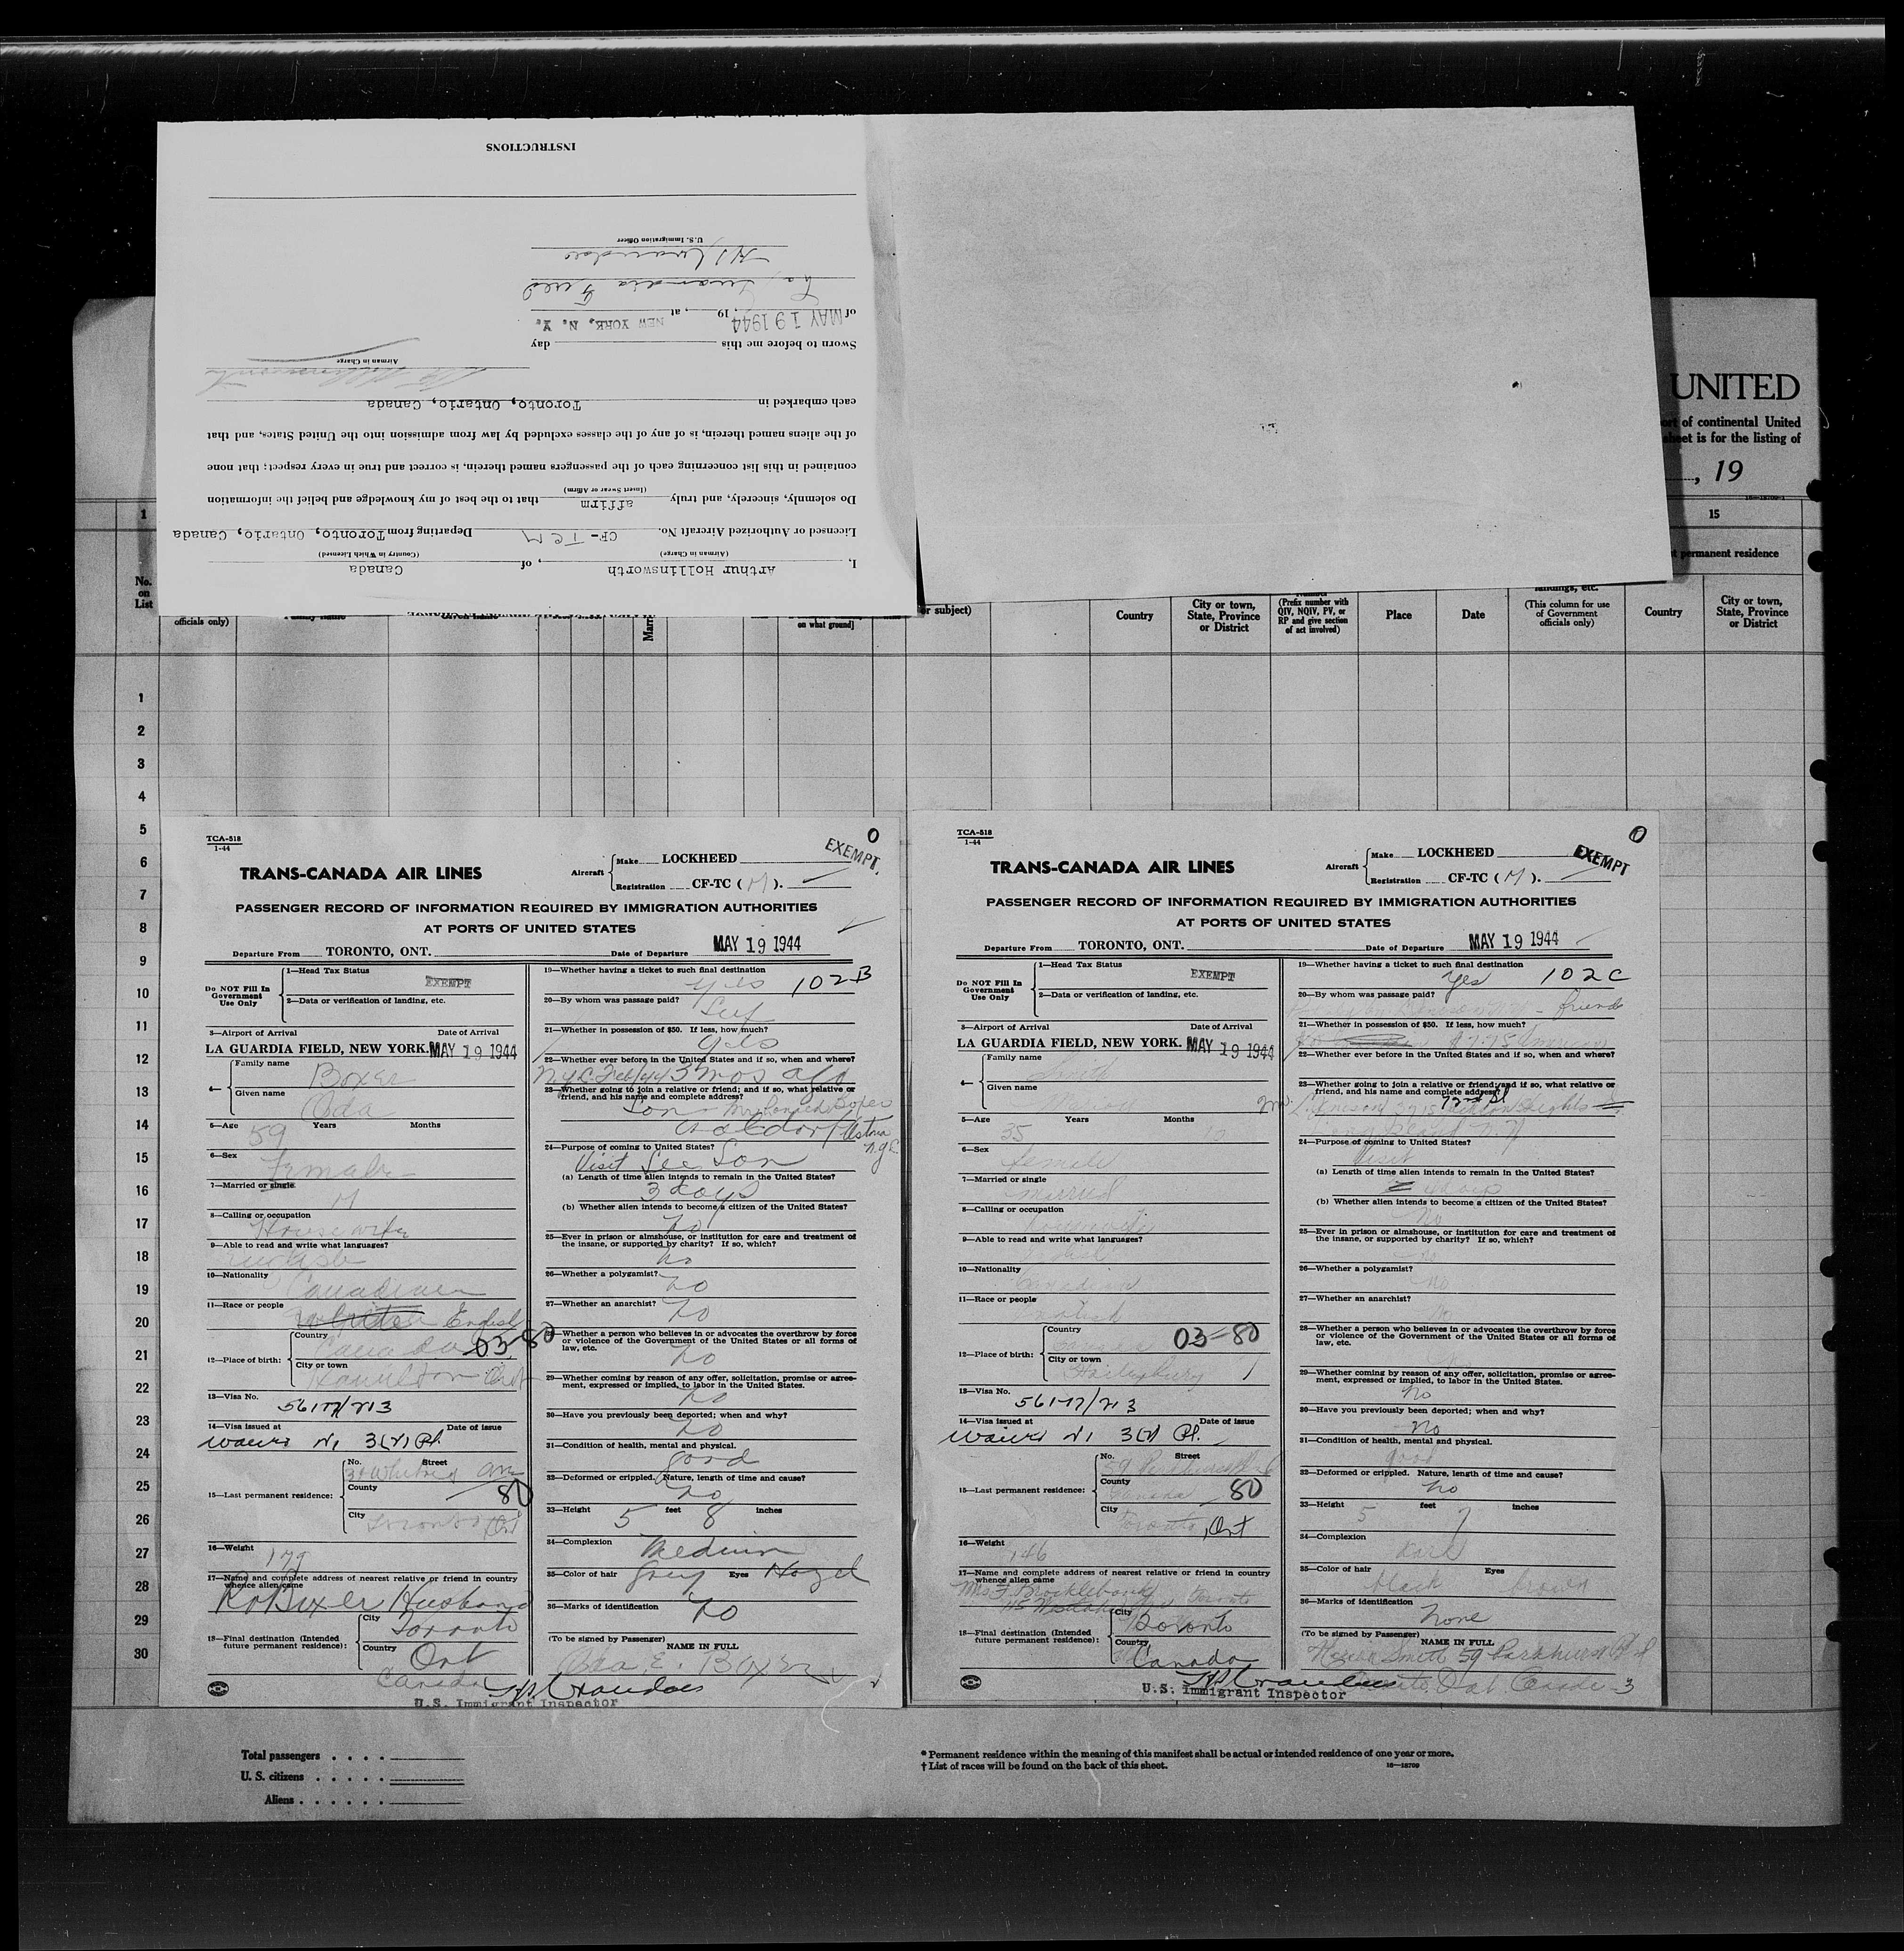 INSTRUCTIONS
U.S. Immigration Officer
of MAY 19 1944, 19, at NEW YORK, N. Y.
Sworn to before me this day
Airman in Charge
each embarked in Toronto, Ontario, Canada
of the aliens named therein, is of any of the classes excluded by law from admission into the United States, and that
contained in this list concerning each of the passengers named therein, is correct and true in every respect; that none
(Insert Swear or Affirm)
Do solemnly, sincerely, and truly affirm that to the best of my knowledge and belief the information
Licensed or Authorized Aircraft No. CF-TCM Departing from Toronto, Ontario, Canada
(Airman in Charge) (Country in Which Licensed)
I, Arthur Hollinsworth, of Canada
UNITED
ort of continental United
sheet is for the listing of
, 19
1
15
permanent residence
No.
on
List
officials only)
on what ground]
or subject)
Country
City or town,
State, Province
or District
(Prefix number with
QIV, NQIV, PV, or
RP and give section
of act involved)
Place
Date
(This column for use
of Government
officials only)
Country
City or town,
State, Province
or District
1
2
3
4
5
6
7
8
9
10
11
12
13
14
15
16
17
18
19
20
21
22
23
24
25
26
27
28
29
30
TCA-518
1-44
0
EXEMPT
TRANS-CANADA AIR LINES
Aircraft
Make LOCKHEED
Registration CF-TC (M).
PASSENGER RECORD OF INFORMATION REQUIRED BY IMMIGRATION AUTHORITIES
AT PORTS OF UNITED STATES
Departure From TORONTO, ONT. Date of Departure MAY 19 1944
Do NOT Fill In
Government
Use Only
1—Head Tax Status EXEMPT
2—Data or verification of landing, etc.
3—Airport of Arrival Date of Arrival
LA GUARDIA FIELD, NEW YORK. MAY 19 1944
4—
Family name
Boxer
Given name
Oda
5—Age 59 Years Months
6—Sex
Female
7—Married or single
M
8—Calling or occupation
Housewife
9—Able to read and write what languages?
English
10—Nationality
Canadian
11—Race or people
English
12—Place of birth:
Country
Canada 03-80
City or town
Hamilton Ont
13—Visa No.
14—Visa issued at Date of issue
15—Last permanent residence:
No. Street
County
80
City
Toronto Ont
16—Weight
17—Name and complete address of nearest relative or friend in country
whence alien came
Boxer Husband
18—Final destination (Intended
future permanent residence):
City
Toronto
Country
Ont
Canada
U.S. Immigrant Inspector
19—Whether having a ticket to such final destination
yes 102B
20—By whom was passage paid?
Self
21—Whether in possession of $50. If less, how much?
yes
22—Whether ever before in the United States and if so, when and where?
N.Y.C. Feb/44 3 mos ago
23—Whether going to join a relative or friend; and if so, what relative or
friend, and his name and complete address?
Son Mr Boxer
Waldorf Astoria
N.Y.C
24—Purpose of coming to United States?
Visit See Son
(a) Length of time alien intends to remain in the United States?
3 days
(b) Whether alien intends to become a citizen of the United States?
no
25—Ever in prison or almshouse, or institution for care and treatment of
the insane, or supported by charity? If so, which?
no
26—Whether a polygamist?
no
27—Whether an anarchist?
no
28—Whether a person who believes in or advocates the overthrow by force
or violence of the Government of the United States or all forms of
law, etc.
no
29—Whether coming by reason of any offer, solicitation, promise or agree-
ment, expressed or implied, to labor in the United States.
no
30—Have you previously been deported; when and why?
no
31—Condition of health, mental and physical.
Good
32—Deformed or crippled. Nature, length of time and cause?
no
33—Height 5 feet 8 inches
34—Complexion
Medium
35—Color of hair Grey Eyes Hazel
36—Marks of identification
no
(To be signed by Passenger)
NAME IN FULL
TCA-518
1-44
0
EXEMPT
TRANS-CANADA AIR LINES
Aircraft
Make LOCKHEED
Registration CF-TC (M).
PASSENGER RECORD OF INFORMATION REQUIRED BY IMMIGRATION AUTHORITIES
AT PORTS OF UNITED STATES
Departure From TORONTO, ONT. Date of Departure MAY 19 1944
Do NOT Fill In
Government
Use Only
1—Head Tax Status EXEMPT
2—Data or verification of landing, etc.
3—Airport of Arrival Date of Arrival
LA GUARDIA FIELD, NEW YORK. MAY 19 1944
4—
Family name
Given name
5—Age 35 Years Months
6—Sex
female
7—Married or single
married
8—Calling or occupation
housewife
9—Able to read and write what languages?
10—Nationality
Canadian
11—Race or people
12—Place of birth:
Country
03-80
City or town
Haileybury
13—Visa No.
14—Visa issued at Date of issue
15—Last permanent residence:
No. Street
59 Parkhurst Blvd
County
Canada 80
City
Toronto, Ont
16—Weight
146
17—Name and complete address of nearest relative or friend in country
whence alien came
Mrs. F. Brocklebank Toronto
18—Final destination (Intended
future permanent residence):
City
Toronto
Country
Canada
U.S. Immigrant Inspector
19—Whether having a ticket to such final destination
Yes 102C
20—By whom was passage paid?
friend
21—Whether in possession of $50. If less, how much?
22—Whether ever before in the United States and if so, when and where?
23—Whether going to join a relative or friend; and if so, what relative or
friend, and his name and complete address?
72nd St
Heights
24—Purpose of coming to United States?
Visit
(a) Length of time alien intends to remain in the United States?
(b) Whether alien intends to become a citizen of the United States?
No
25—Ever in prison or almshouse, or institution for care and treatment of
the insane, or supported by charity? If so, which?
26—Whether a polygamist?
No
27—Whether an anarchist?
No
28—Whether a person who believes in or advocates the overthrow by force
or violence of the Government of the United States or all forms of
law, etc.
29—Whether coming by reason of any offer, solicitation, promise or agree-
ment, expressed or implied, to labor in the United States.
no
30—Have you previously been deported; when and why?
No
31—Condition of health, mental and physical.
good
32—Deformed or crippled. Nature, length of time and cause?
No
33—Height 5 feet 7 inches
34—Complexion
Dark
35—Color of hair Eyes
black brown
36—Marks of identification
None
(To be signed by Passenger)
NAME IN FULL
Smith 59 Parkhurst Blvd
Toronto, Ont. Canada
Total passengers
U. S. citizens
Aliens
* Permanent residence within the meaning of this manifest shall be actual or intended residence of one year or more.
† List of races will be found on the back of this sheet.
16—18709